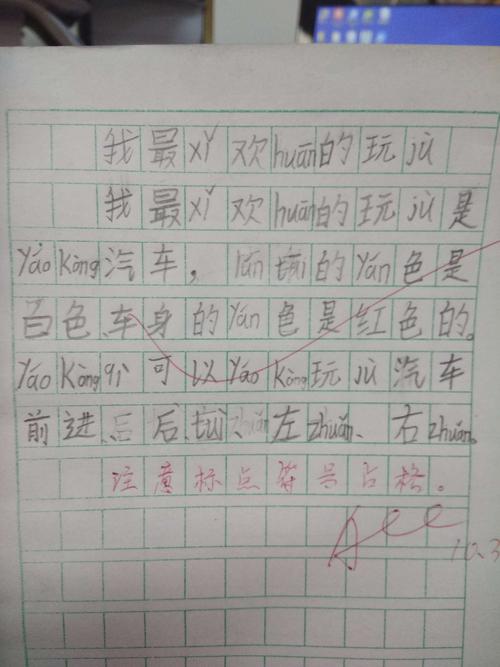 我最xǐ欢huān的玩jù
我最xǐ欢huān的玩jù是
yáo kòng汽车，lún tāi的yán色是
白色、车身的yán色是红色的。
yáo kòng qì可以yáo kòng玩jù汽车
前进、后后tuì、左zhuǎn、右zhuǎn。
注意标点符号占格。
A
10.3